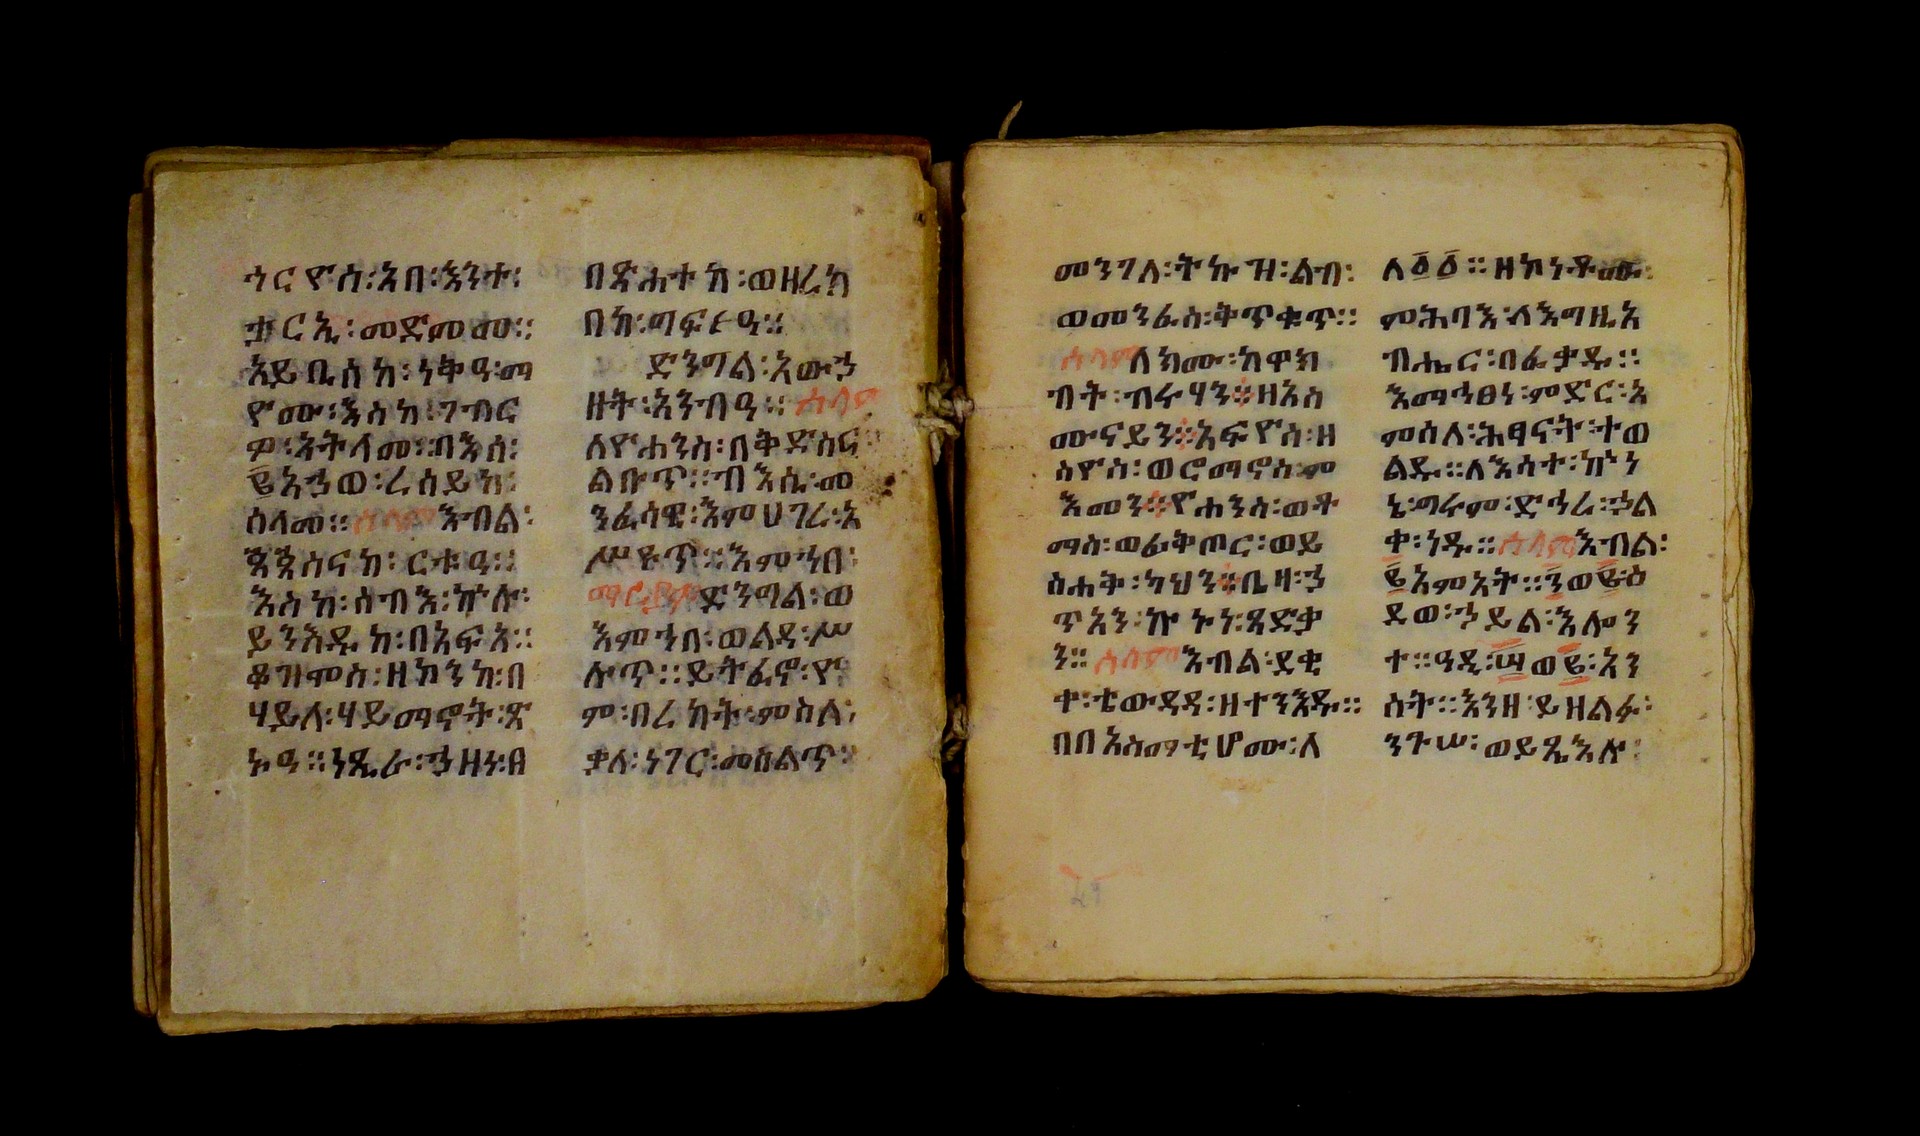 ኅርዮስ፡አበ፡እንተ፡
ቂርኂ፡መድመመ።
አይቤሰከ፡ነቅዓ፡ማ
ዮሙ፡እስከ፡ገብር
ዎ፡አትላመ፡በእሰ፡
፩አኃወ፡ረሰይከ፡
ሰላመ። ሰላም እብል፡
ጳጳስናከ፡ርቱዓ።
እስከ፡ሰብእ፡ኵሉ፡
ይንእዱከ፡በአፍአ።
ቆዝሞስ፡ዘኮንከ፡በ
ሃይለ፡ሃይማኖት፡ጽ
ኑዓ።
በጽሐተከ፡ወዘረከ
በከ፡ግፍዖዓ።
ድንግል፡አውኃ
ዘት፡አንብዓ። ሰላም
ለዮሐንስ፡በቅድስና
ልቡጥ። ብእሴ፡መ
ንፈሳዊ፡እምሀገረ፡አ
ሥዩጥ። እምኀበ፡
ማርያም ድንግል፡ወ
እምኀበ፡ወልዳ፡ሥ
ሉጥ። ይትፈኖ፡ዮ
ም፡በረከት፡ምስለ፡
ቃለ፡ነገር፡መሰልጥ።
መንገለ፡ትኩዝ፡ልብ፡
ወመንፈስ፡ቅጥቁጥ።
ሰላም ለክሙ፡ከዋክ
ብት፡ብሩሃን። ዘአስ
ሙናይን። አፍዮስ፡ዘ
ስዮስ፡ወሮማኖስ፡ም
እመን። ዮሐንስ፡ወቶ
ማስ፡ወፊቅጦር፡ወይ
ስሐቅ፡ካህን። ቤዛ፡ኃ
ጥአን፡ኵኑነ፡ጻድቃ
ን። ሰላም እብል፡ደቂ
ቀ፡ቴውዳዳ፡ዘተንእዱ።
በበአስማቲሆሙ፡ለ
ለ፩፩። ዘኮነቶሙ፡
ምሕባእ፡ለእግዚአ
ብሔር፡በፈቃዱ።
እማኅፀነ፡ምድር፡አ
ምሰለ፡ሕፃናት፡ተወ
ልዱ። ለእሳተ፡ኵነ
ኔ፡ግሩም፡ድኅረ፡ኃል
ቀ፡ነዱ። ሰላም እብል፡
፼አምአት። ፶ወ፼ስ
ደወ፡ኃይል፡እሎን
ተ። ዓዲ፡፲፻ወ፼፡አን
ስት። እንዘ፡ይዘልፉ፡
ንጉሠ፡ወይጼእሉ፡